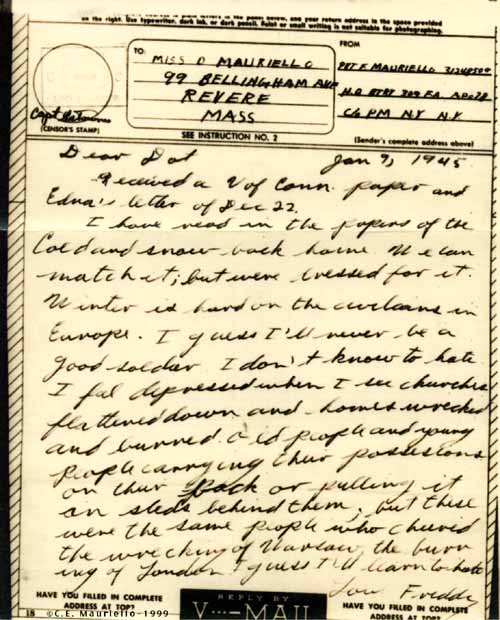 on the right. Use typewriter, dark ink, or dark pencil. Faint or small writing is not suitable for photographing.
TO:
MISS D MAURIELLO
99 BELLINGHAM AVE
REVERE
MASS
FROM
PVT F. MAURIELLO
HQ BTRY 309 FA APO 78
C/o PM NY N.Y.
Capt
(CENSOR'S STAMP)
SEE INSTRUCTION NO. 2
(Sender's complete address above)
Dear Dot
Jan 9, 1945
Received a U of Conn. paper and
Edna's letter of Dec 22.
I have read in the papers of the
Cold and snow back home. We can
match it; but were dressed for it.
Winter is hard on the civilians in
Europe. I guess I'll never be a
good soldier. I don't know to hate.
I feel depressed when I see churches
flattened down and homes wrecked
and burned. Old people and young
people carrying their possesions
on their back or pulling it
on sleds behind them; but these
were the same people who cheered
the wrecking of Warsaw, the burn
ing of London. I guess I'll learn to hate
Love Freddy
HAVE YOU FILLED IN COMPLETE
ADDRESS AT TOP?
REPLY BY
V···-MAIL
HAVE YOU FILLED IN COMPLETE
ADDRESS AT TOP?
18
©C.E. Mauriello 1999